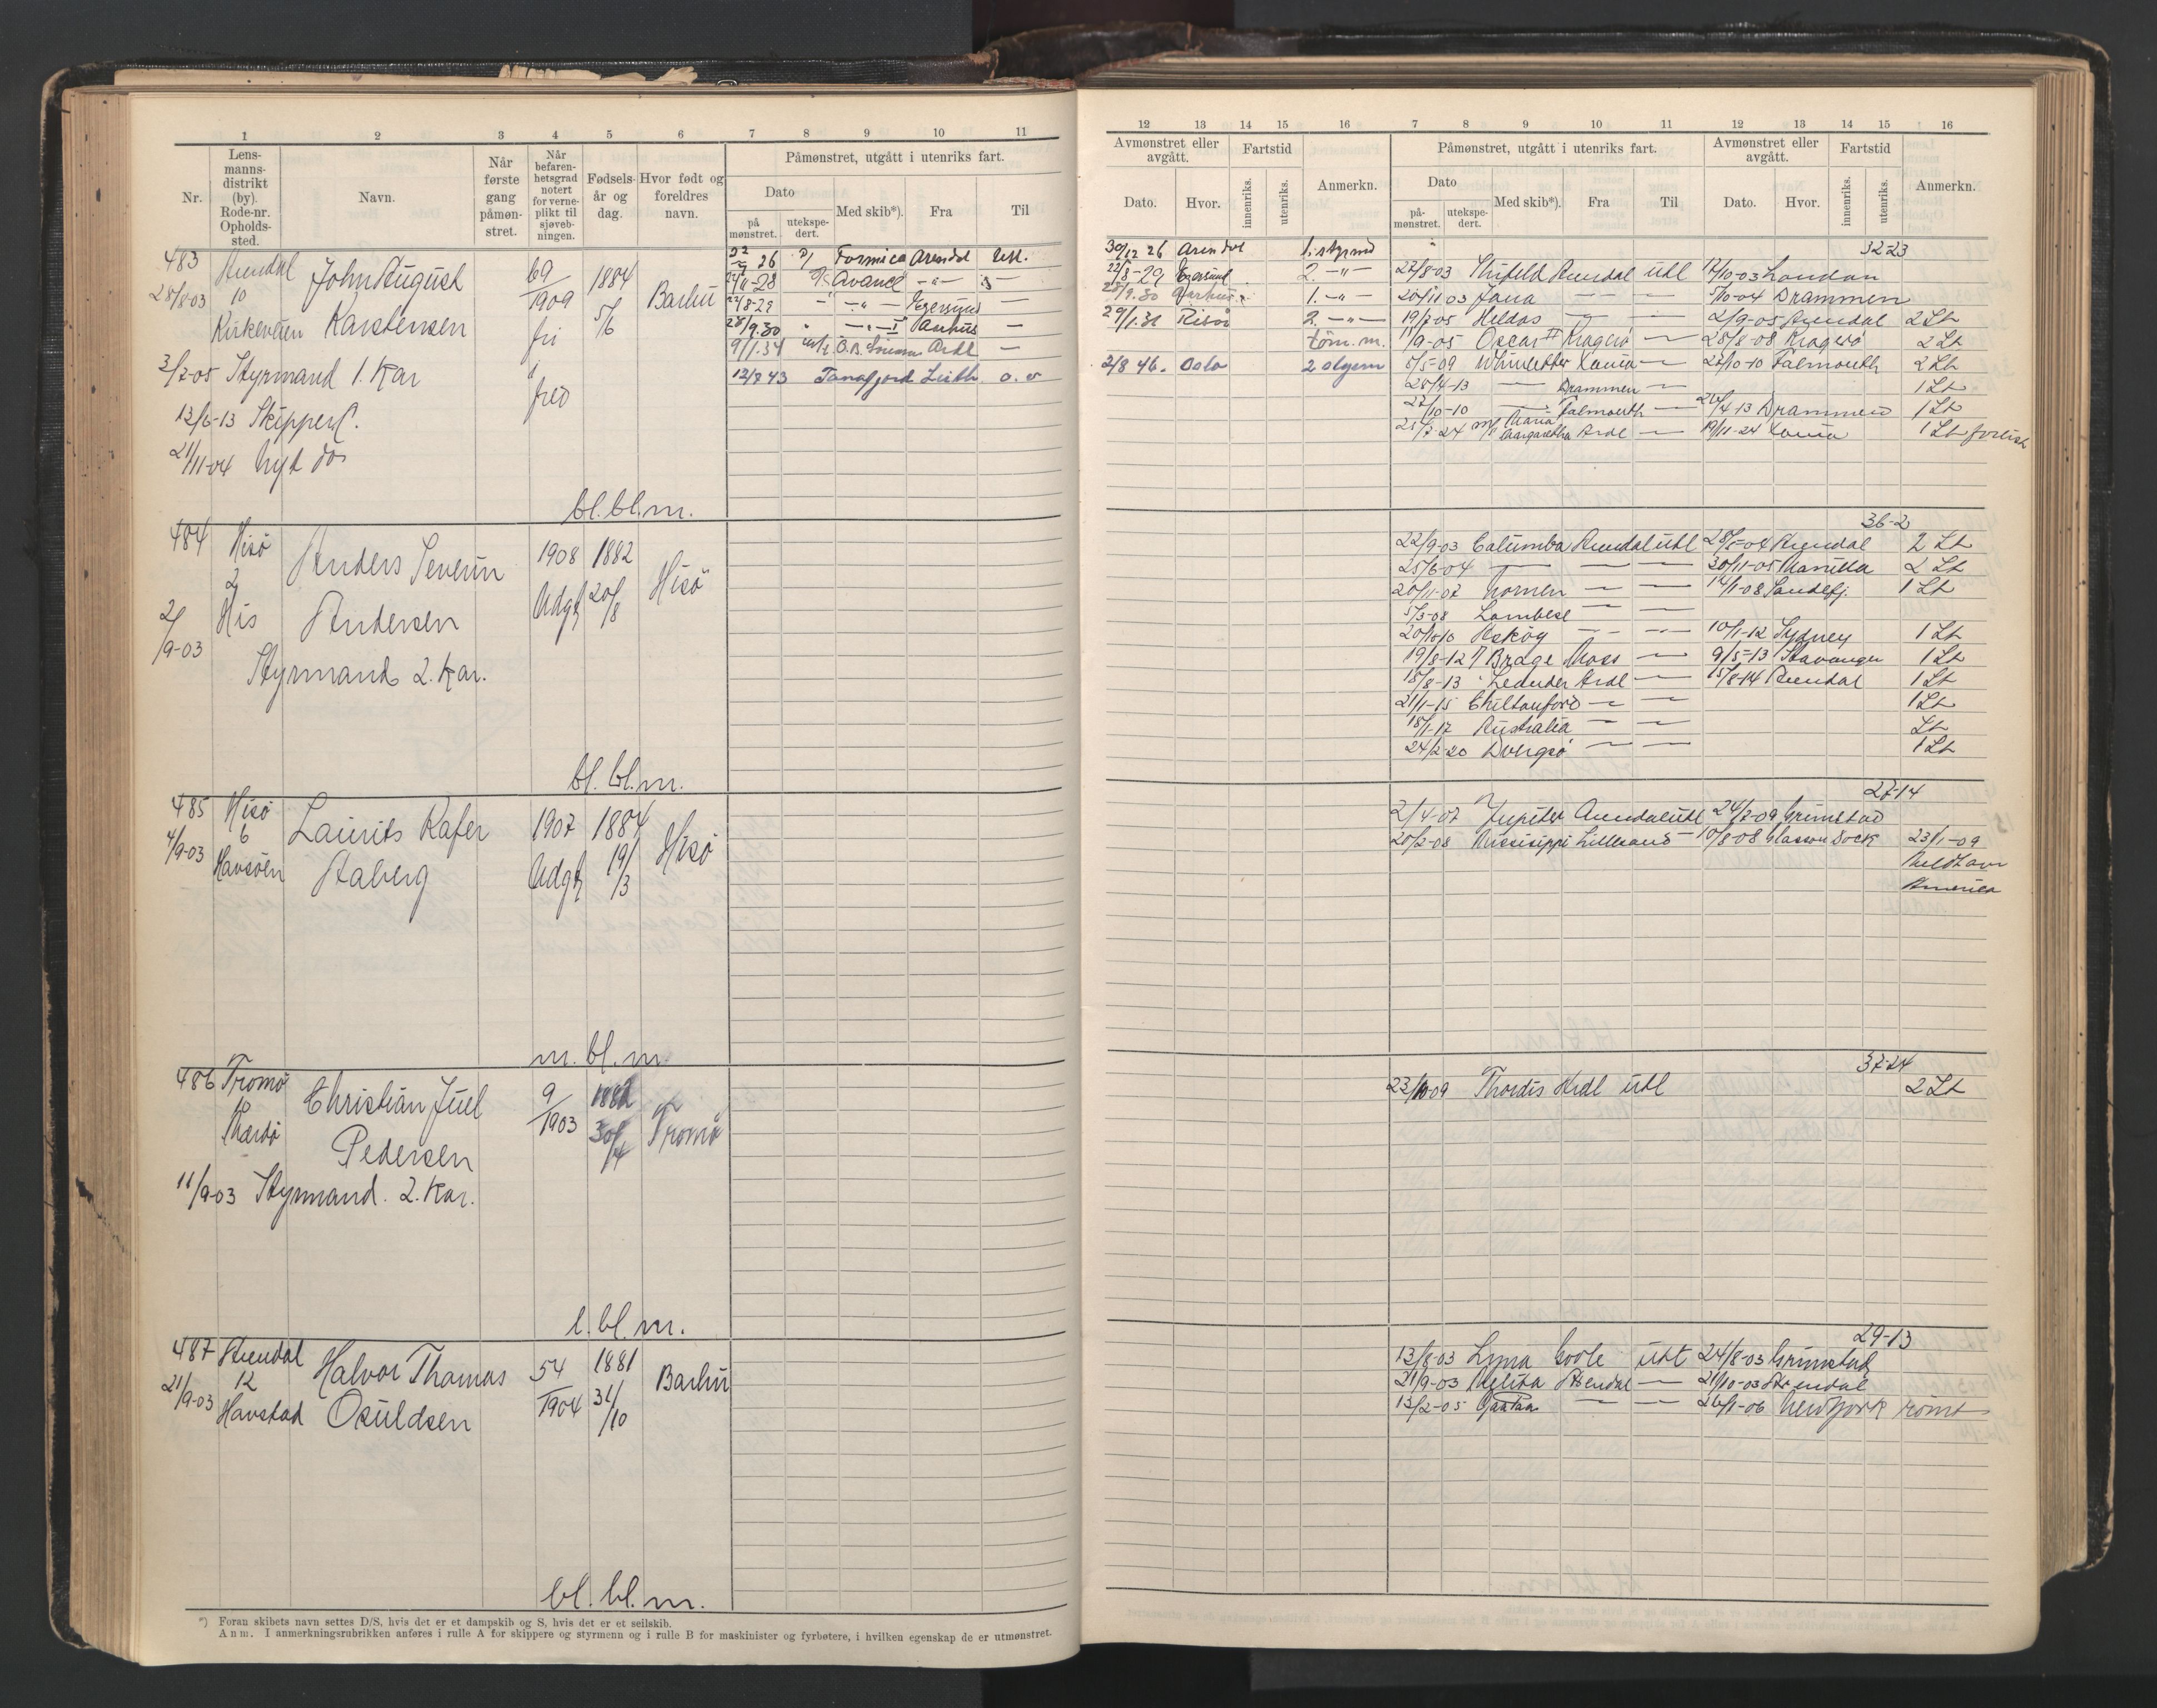 1 2 3 4 5 6 7 8 9 10 11
Nr.
Lens-
manns-
distrikt
(by).
Rode-nr.
Opholds-
sted.
Navn.
Når
første
gang
påmøn-
stret.
Når
befaren-
hetsgrad
notert
for verne-
plikt til
sjøveb-
ningen.
Fødsels-
år og
dag.
Hvor født og
foreldres
navn.
Påmønstret, utgått i utenriks fart.
Dato
på
mønstret.
utekspe-
dert.
Med skib*).
Fra
Til
483 Arendal John August 69 1884
28/8-03 10 1909 5/6 Barbu
Kirkeveien Karstensen fri
3/7-05 Styrmand 1. Kar
12/6-13 Skipperc.
21/11-04 Nyt do
26 Formica Arendal Utl.
28 Avance -"-
22/8-29 -"- Egersund —
28/9.30 -"- Aarhus —
9/1.31 Ardl —
12/8 43 Tanafjord Leith
bl. bl. m.
484 Hisö Anders Severin 1908 1882
2 Udgt 20/8 Hisö
His Andersen
2/9-03
Styrmand 2. Kar.
bl. bl. m.
485 Hisö Laurits Kafer 1907 1884
4/9-03 6 Udgt 19/3 Hisö
Havsöen Aaberg
m. bl. m
486 Tromö Christian Juel 9 1882
1903 30/4 Tromö
Pedersen
11/9-03 Styrmand. 2. Kar.
l. bl. m.
487 Arendal Halvor Thomas 54 1881
21/9-03 12 1904 31/10 Barbu
Havstad Osuldsen
bl. bl. m.
*) Foran skibets navn settes D/S, hvis det er et dampskib og S, hvis det er et seilskib.
Anm. I anmerkningsrubrikken anføres i rulle A for skippere og styrmenn og i rulle B for maskinister og fyrbøtere, i hvilken egenskap de er utmønstret.
12 13 14 15 16 7 8 9 10 11 12 13 14 15 16
Avmønstret eller
avgått.
Dato.
Hvor.
Fartstid
innenriks.
utenriks.
Anmerkn.
Påmønstret, utgått i utenriks fart.
Dato
på-
mønstret.
utekspe-
dert.
Med skib*).
Fra
Til
Avmønstret eller
avgått.
Dato.
Hvor.
Fartstid
innenriks.
utenriks.
Anmerkn.
30/12 26 Arendal 1. styrmd
22/8-29 Egersund 2. -"-
28/9.30 Aarhus 1. -"-
29/1.31 Risör 2. -"-
töm. m.
2/8 46. Oslo 2 styrm
32-23
27/8-03 Arendal utl 17/10-03 London
20/11 03 Jana — — 5/10-04 Drammen
19/7-05 Heldos — — 2/9-05 Arendal 2 St
11/9-05 Oscar II Kragerö — 28/8-08 Kragerö 2 St
8/5-09 Whinlatter — 22/10-10 Falmouth 2 St
28/4-13 — Drammen — 1 St
22/10-10 — Falmouth — 26/4 13 Drammen 1 St
25/7-24 Maria Margaretha Ardl — 19/11-24 1 St forlist
36-2
22/9-03 Columba Arendal utl 28/5-04 Arendal 2 St
25/6-04 — — — 30/11-05 Manilla 2 St
20/11-07 Nornen — — 14/1-08 Sandefj. 1 St
5/3-08 Lambese — —
20/10-10 Askög — — 10/1-12 Sydney 1 St
19/8-12 Brage Moss — 9/5-13 Stavanger 1 St
18/8-13 Ardl — 15/8-14 Arendal 1 St
21/1-15 Chiltonford — — 1 St
18/1-17 Australia — — St
24/2-20 Dvergsö — — 1 St
27-14
2/4-07 Jupiter Arendal utl 24/7-09 Grimstad
20/2-08 Missisippi Lillesand — 10/8-08 Glasson Dock 23/1-09
America
37-24
23/10-09 Thordis Ardl utl 2 St
29-13
13/8-03 Lyna Goole utl 24/8-03 Grimstad
21/9-03 Arendal — 21/10-03 Arendal
13/2-05 — — 26/1-06 New York römt